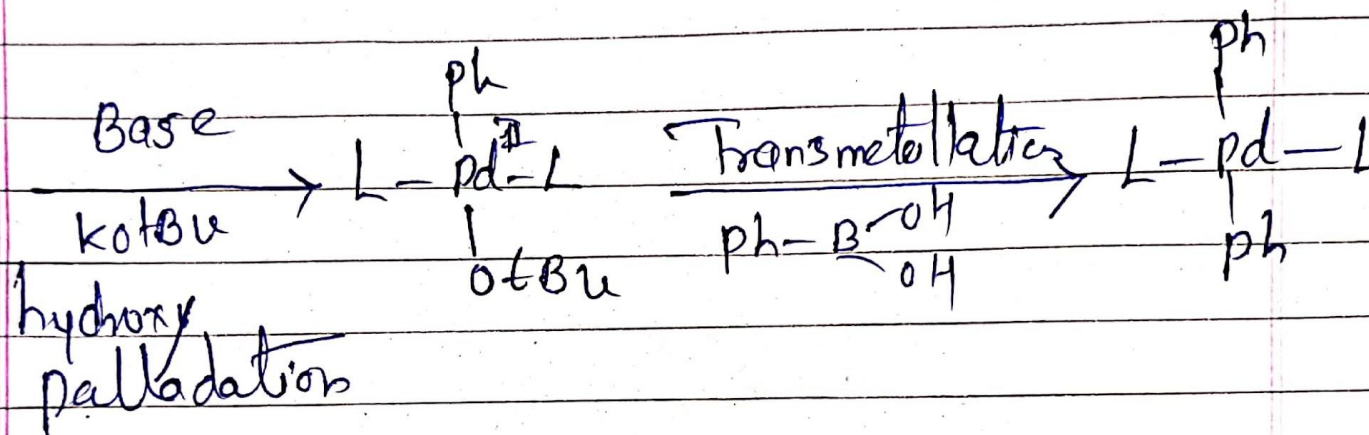 ph ph
Base L - Pd^II - L Transmetallation L - Pd - L
KOtBu OtBu ph - B OH OH ph
hydroxy
palladation